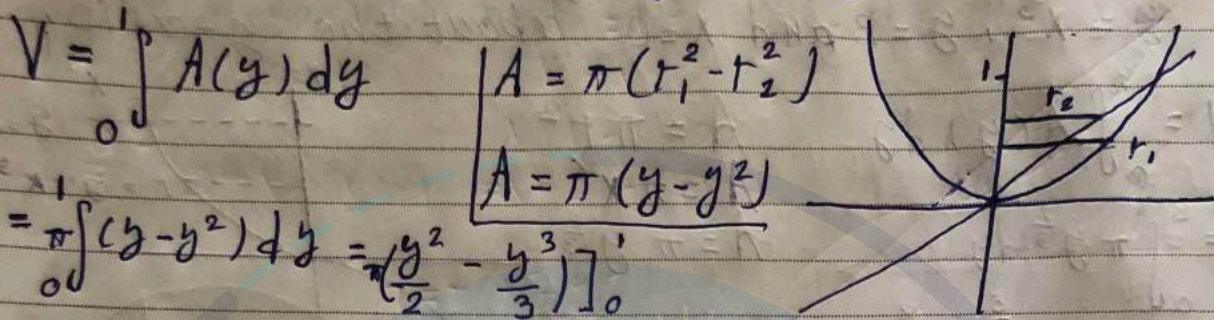 V = ∫₀¹ A(y) dy
A = π(r₁² - r₂²)
A = π (y - y²)
= π ∫₀¹ (y - y²) dy = π(y²/2 - y³/3)]₀¹
1
r₂
r₁